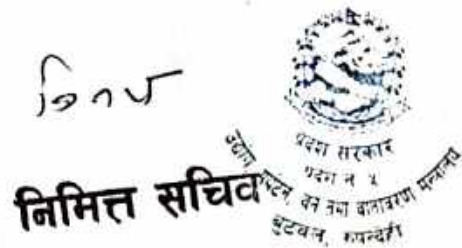 निमित्त सचिव
प्रदेश सरकार
प्रदेश नं ५
उद्योग, पर्यटन, वन तथा वातावरण मन्त्रालय
बुटवल, रुपन्देही